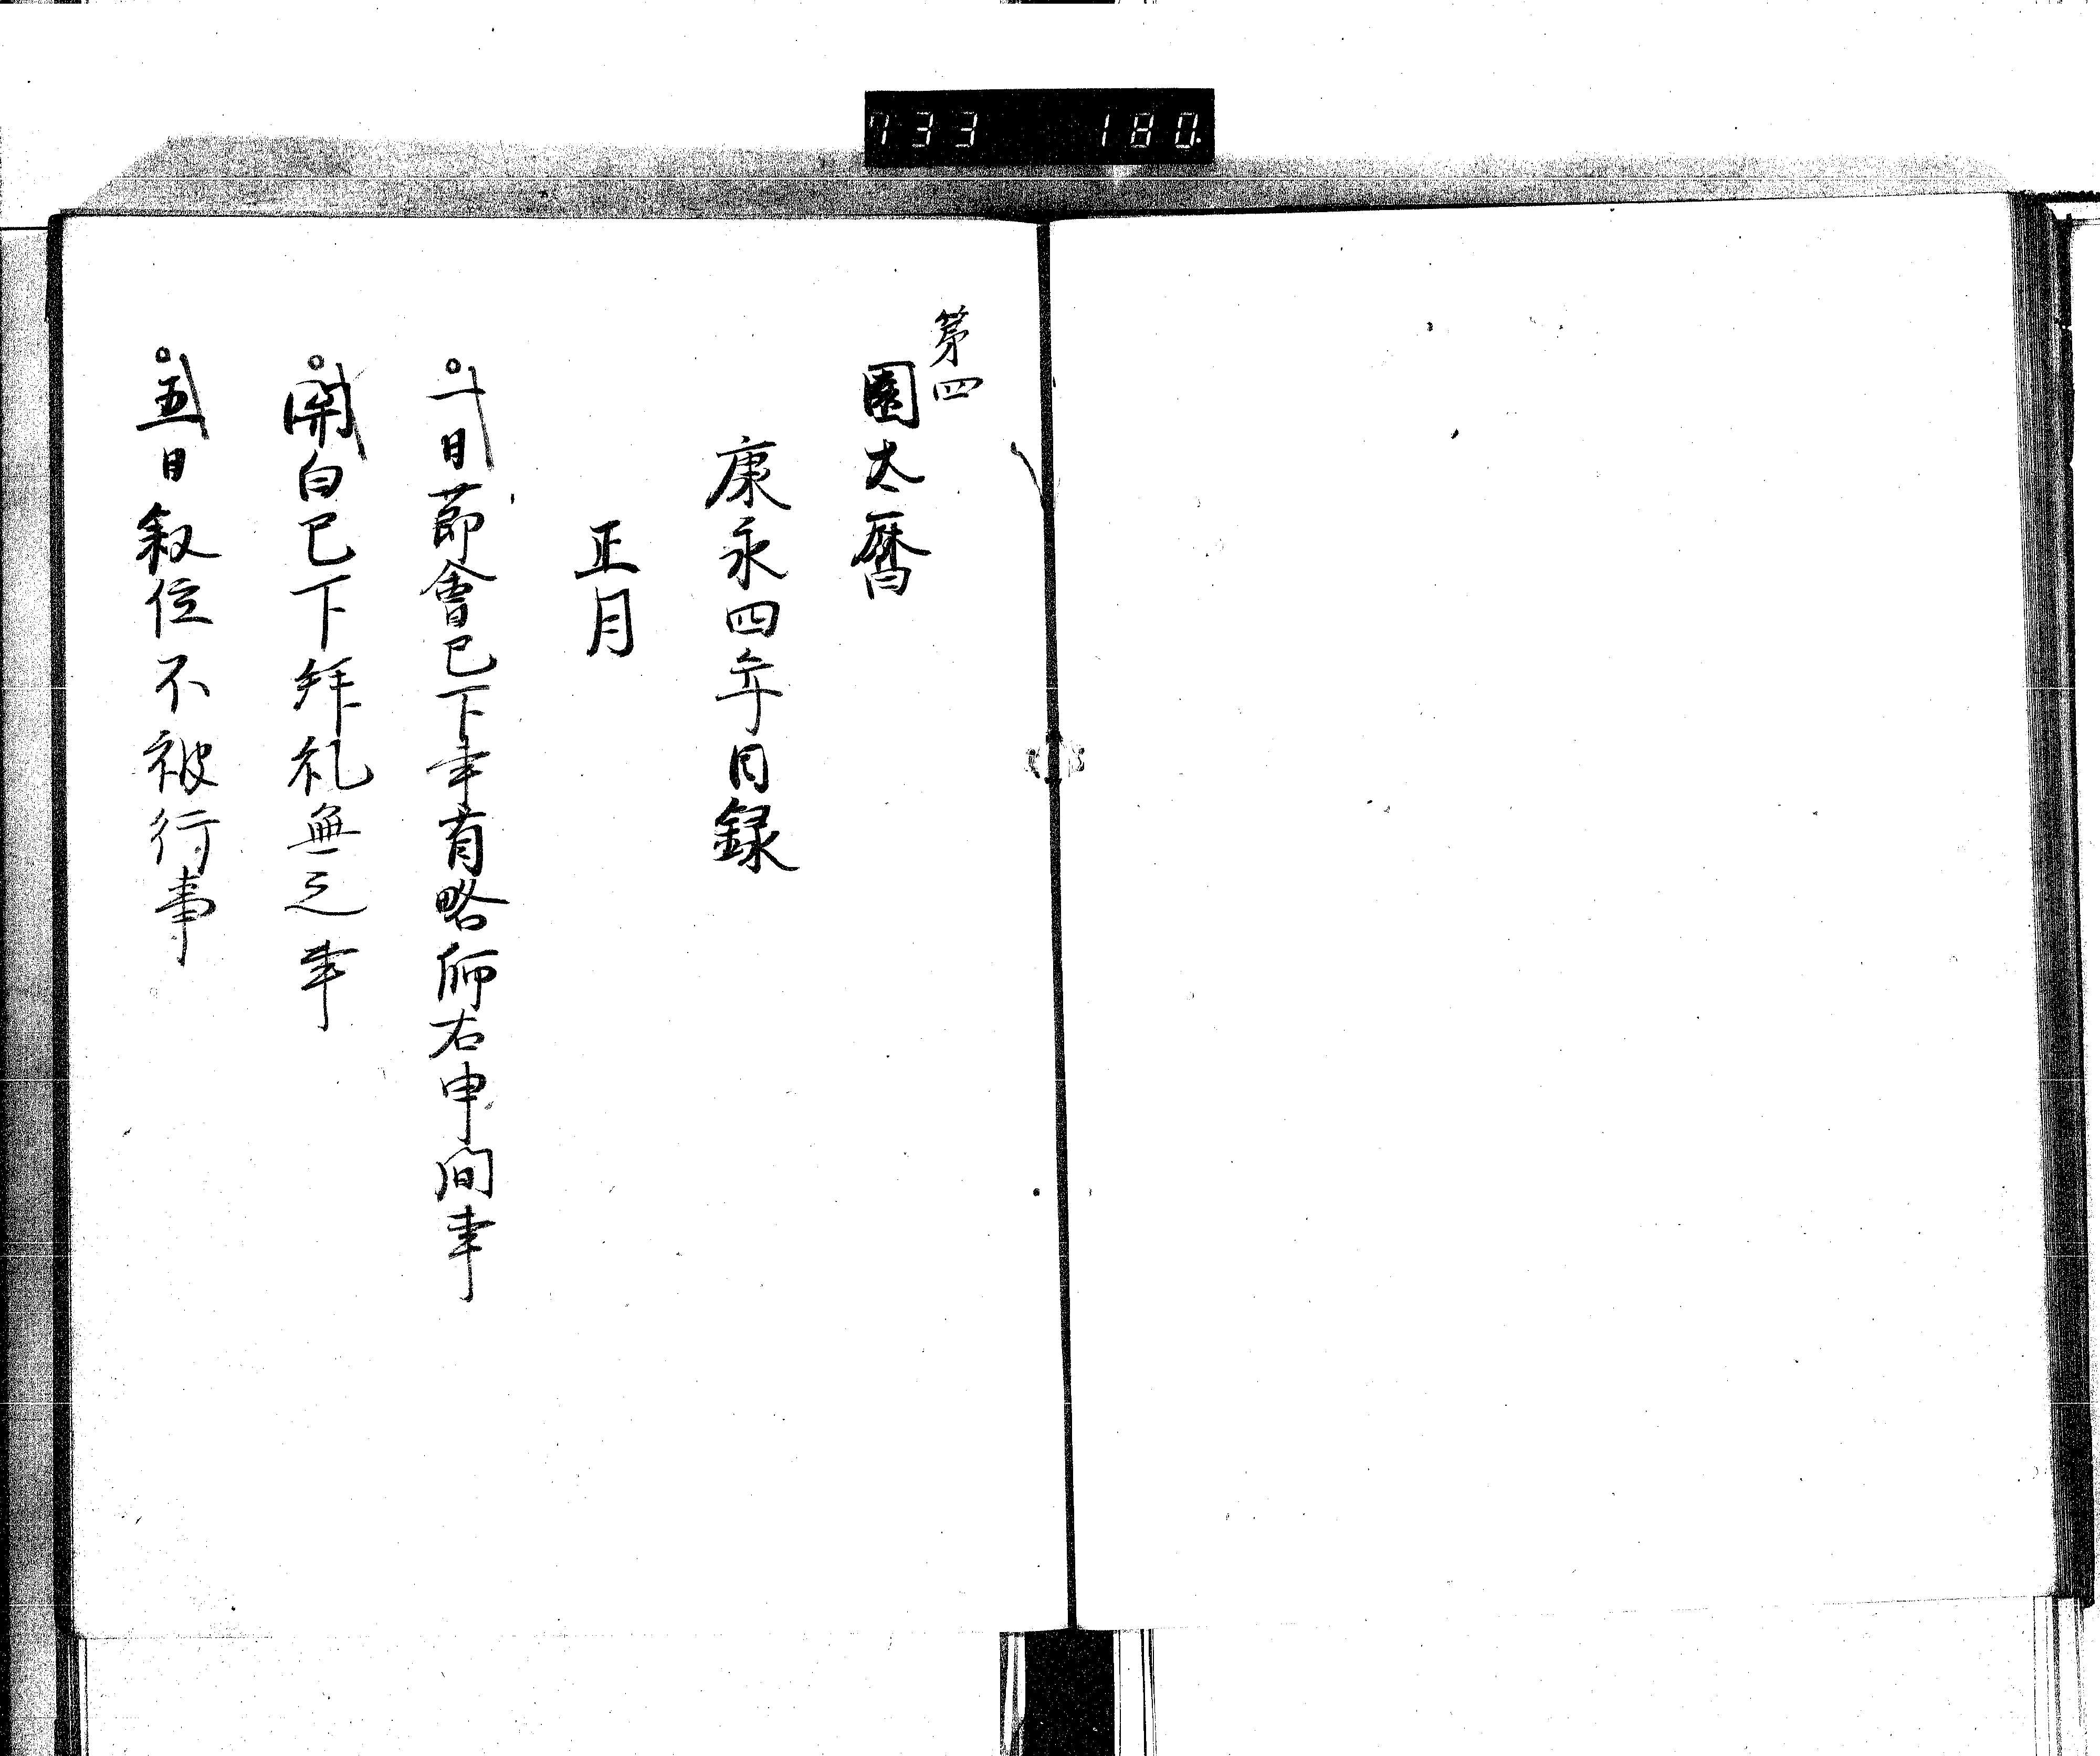 733 180
第四
園太暦
康永四年目録
正月
一日節會已下事有略師右申間事
関白已下拜礼無之事
五日叙位不被行事